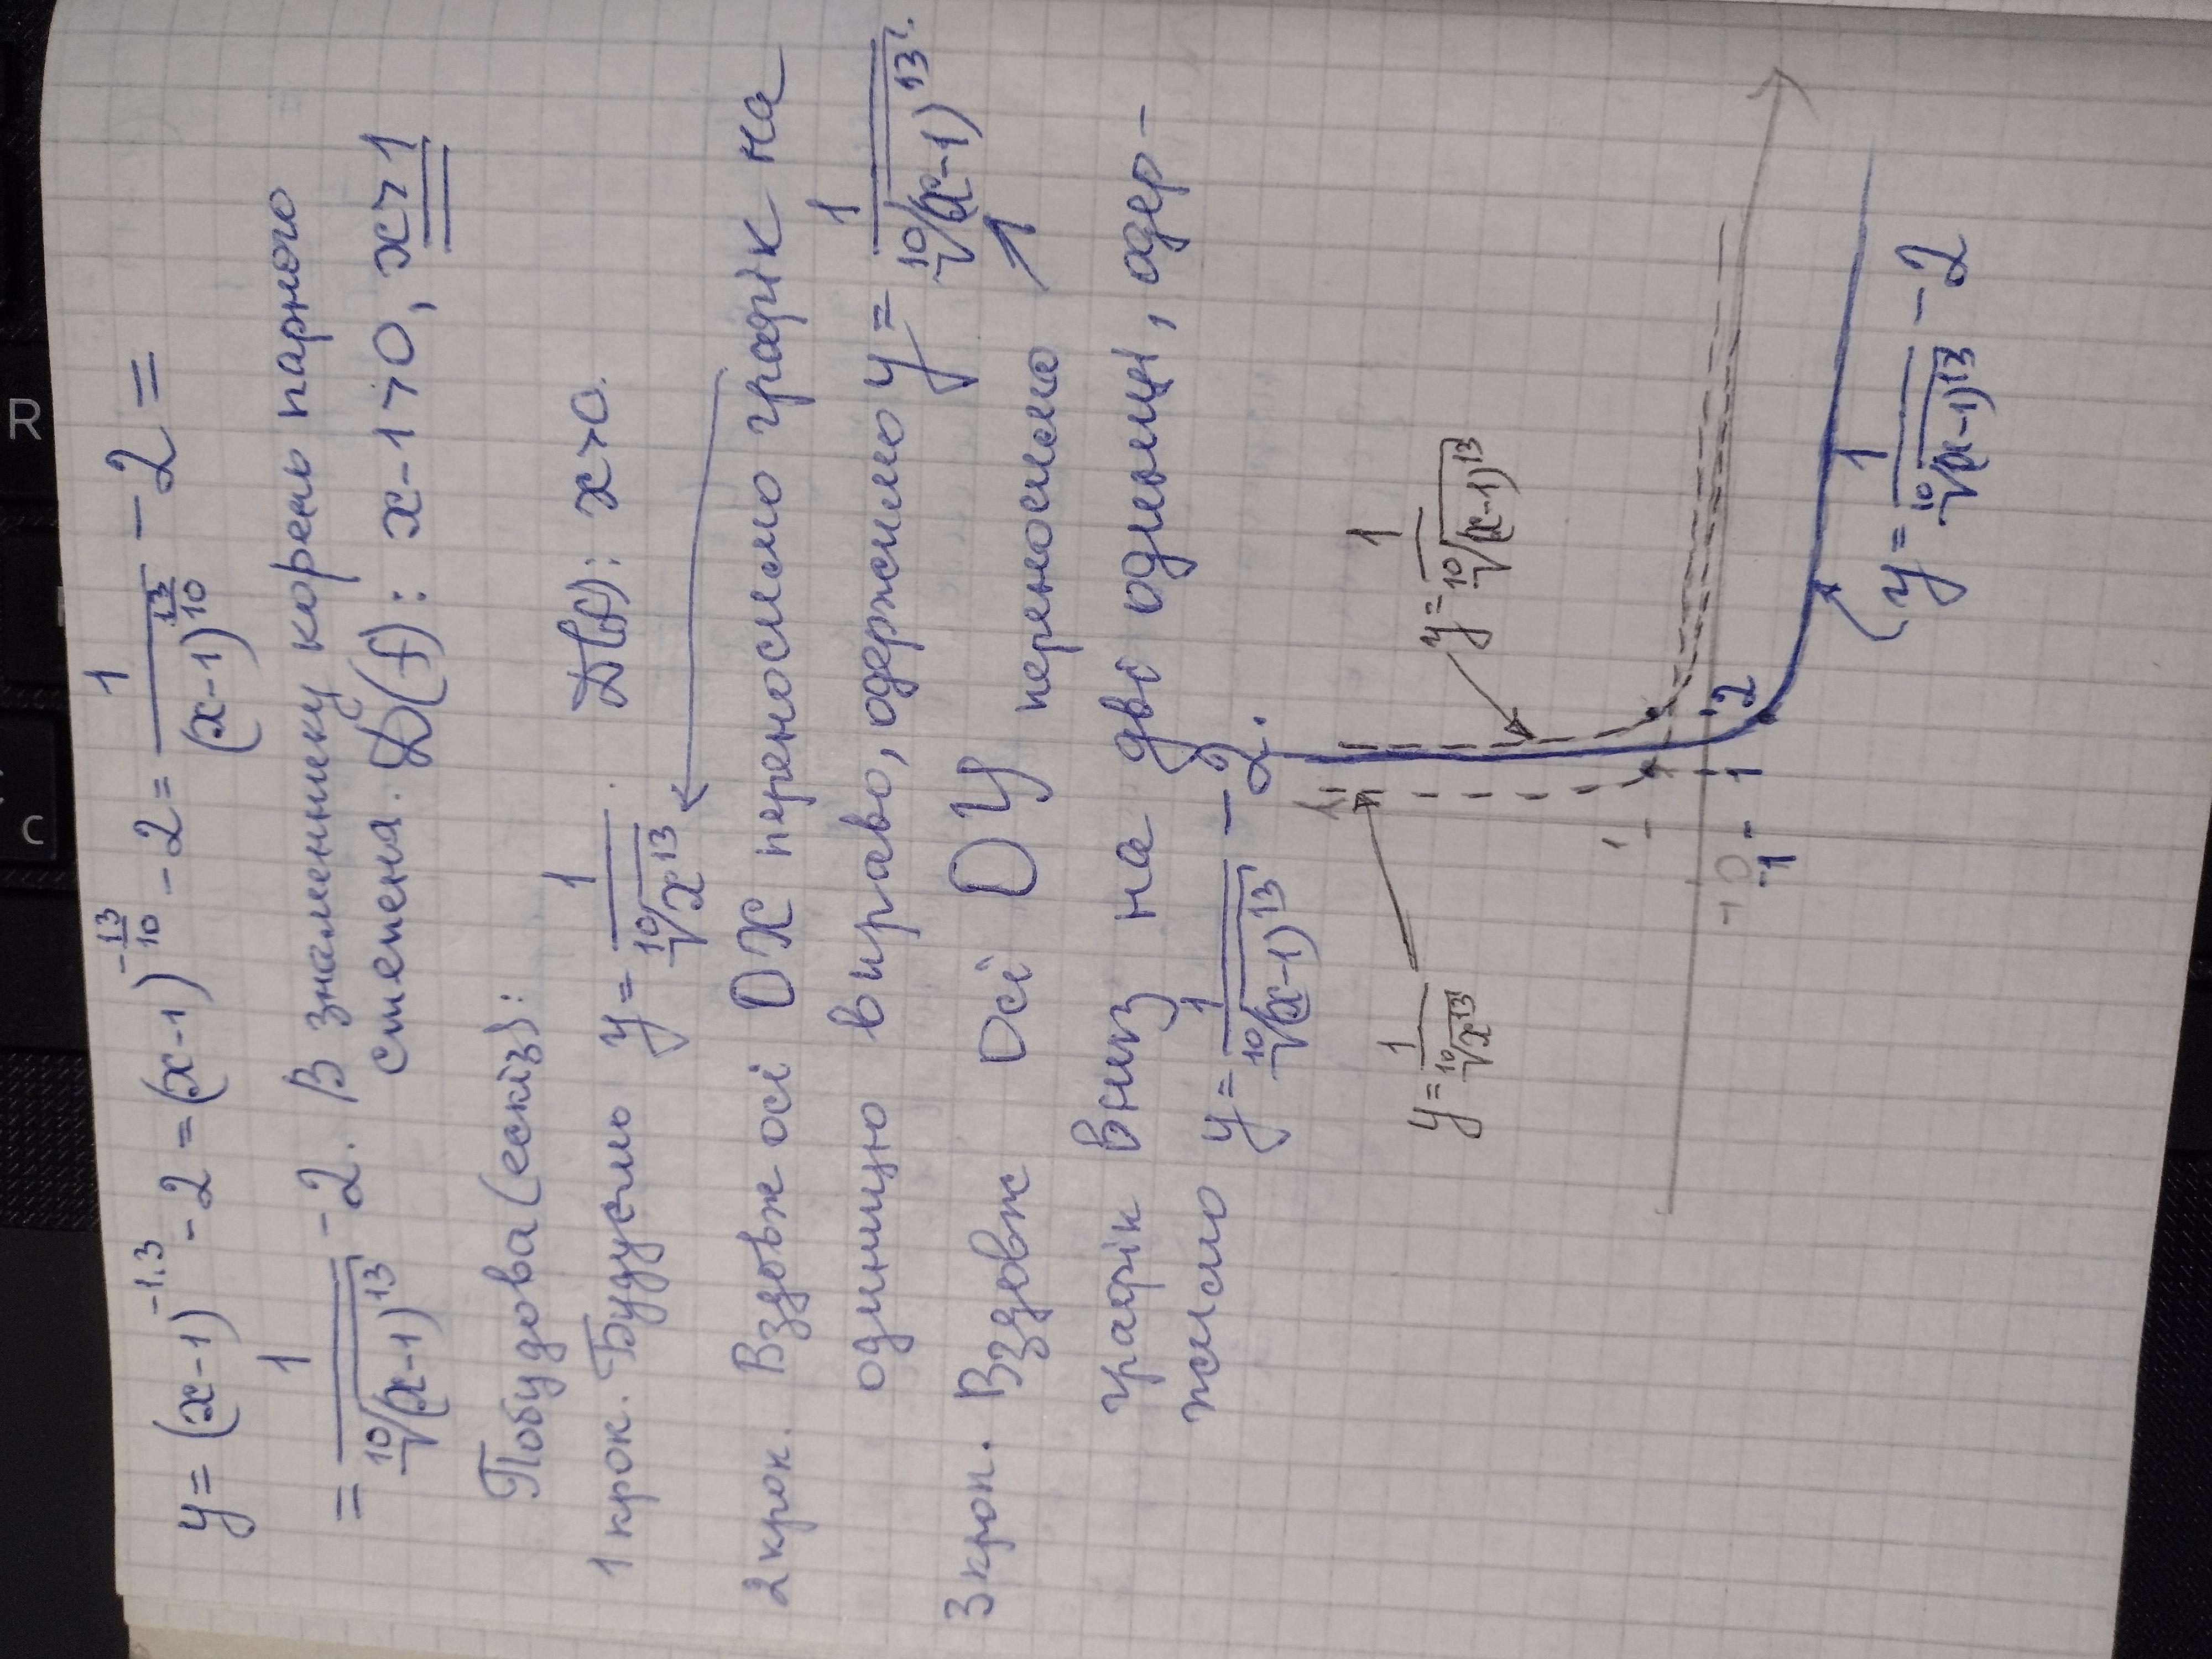 y = (x-1)^{-1.3} - 2 = (x-1)^{-\frac{13}{10}} - 2 = \frac{1}{(x-1)^{\frac{13}{10}}} - 2 =
= \frac{1}{\sqrt[10]{(x-1)^{13}}} - 2. В знаменнику корень парного
степеня. D(f): x-1>0, x>1
Побудова (ескіз):
1 крок. Будуємо y = \frac{1}{\sqrt[10]{x^{13}}}. D(f): x>0.
2 крок. Вздовж осі OX переносимо графік на
одиницю вправо, одержимо y = \frac{1}{\sqrt[10]{(x-1)^{13}}}.
3 крок. Вздовж осі OY переносимо
графік вниз на дві одиниці, одер-
жимо y = \frac{1}{\sqrt[10]{(x-1)^{13}}} - 2.
y = \frac{1}{\sqrt[10]{x^{13}}}
y = \frac{1}{\sqrt[10]{(x-1)^{13}}}
1
0 1 2
-1
y = \frac{1}{\sqrt[10]{(x-1)^{13}}} - 2
R
C